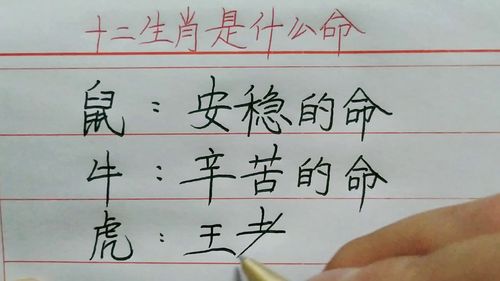 十二生肖是什么命
鼠：安稳的命
牛：辛苦的命
虎：王